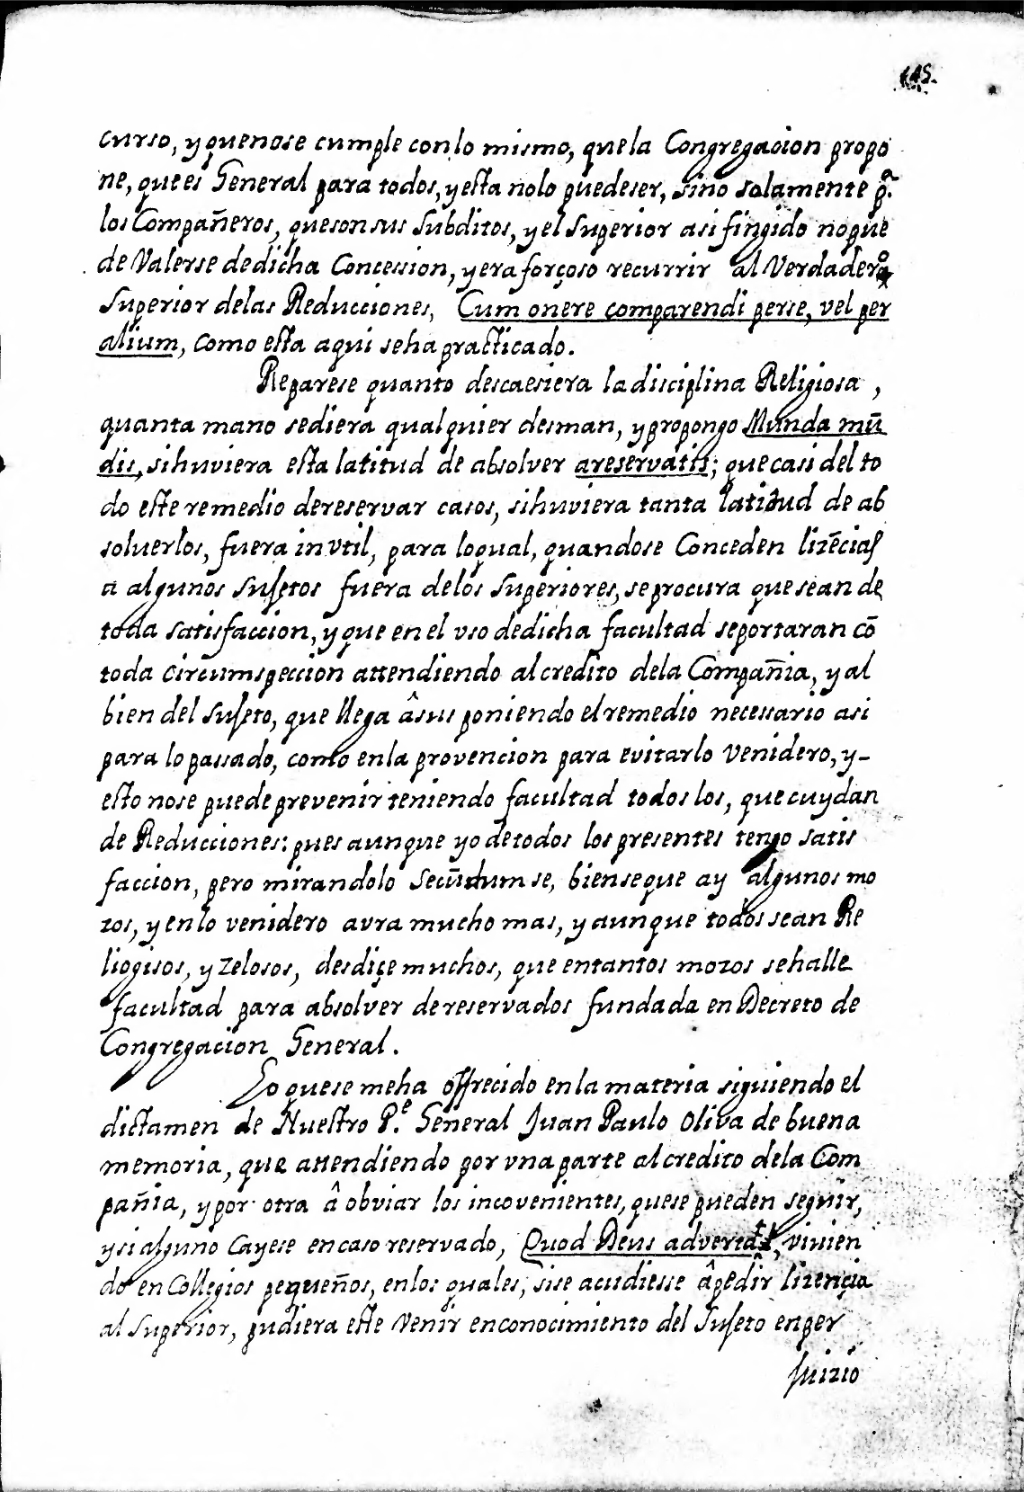 145.
curso, y que no se cumple con lo mismo, que la Congregacion propo
ne, que es General para todos, y esta no lo puede ser, sino solamente pª.
los Compañeros, que son sus subditos, y el Superior asi fingido no pue
de Valerse de dicha Concession, y era forçoso recurrir al Verdadero
Superior de las Reducciones, Cum onere comparendi per se, vel per
alium, como esta aqui se ha practicado.
Reparese quanto descaesiera la disciplina Religiosa,
quanta mano se diera qualquier desman, y propongo Munda mū
dis, si huviera esta latitud de absolver a reservatis; que casi del to
do este remedio de reservar casos, si huviera tanta latitud de ab
soluerlos, fuera in vtil, para lo qual, quando se Conceden lizēcias
a algunos sujetos fuera de los Superiores, se procura que sean de
toda satisfaccion, y que en el vso de dicha facultad se portaran cō
toda circumspeccion attendiendo al credito de la Compañia, y al
bien del sujeto, que llega â sus poniendo el remedio necessario asi
para lo passado, como en la provencion para evitarlo Venidero, y-
esto no se puede prevenir teniendo facultad todos los, que cuydan
de Reducciones: pues aunque yo de todos los presentes tengo satis
faccion, pero mirandolo secūdum se, bien se que ay algunos mo
zos, y en lo venidero avra mucho mas, y aunque todos sean Re
liogisos, y Zelosos, desdiçe muchos, que en tantos mozos se halle
facultad para absolver de reservados fundada en Decreto de
Congregacion General.
Lo que se me ha offrecido en la materia siguiendo el
dictamen de Nuestro Pe. General Juan Paulo Oliva de buena
memoria, que attendiendo por vna parte al credito de la Com
pañia, y por otra â obviar los incovenientes, que se pueden seguir,
y si alguno Cayese en caso reservado, Quod Deus advertat, vivien
do en Collegios pequeños, en los quales, si se acudiesse â pedir lizençia
al Superior, pudiera este Venir en conocimiento del Sujeto en per
juizio